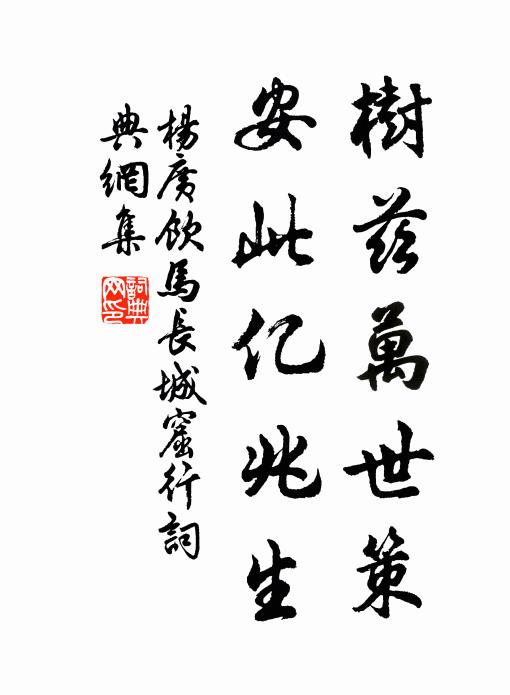 樹茲萬世策
安此亿兆生
楊廣飲馬長城窟行詞
典網集
詞典网印